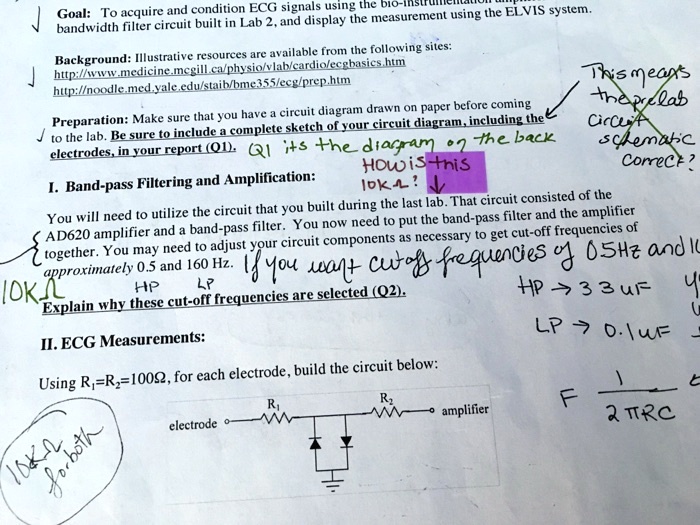 Goal: To acquire and condition ECG signals using the bio-instrumentation
bandwidth filter circuit built in Lab 2, and display the measurement using the ELVIS system.
Background: Illustrative resources are available from the following sites:
http://www.medicine.mcgill.ca/physio/vlab/cardio/ecgbasics.htm
http://noodle.med.yale.edu/staib/bme355/ecg/prep.htm
This means
the prelab
circuit
schematic
correct?
Preparation: Make sure that you have a circuit diagram drawn on paper before coming
to the lab. Be sure to include a complete sketch of your circuit diagram, including the
electrodes, in your report (Q1). Q1 its the diagram on the back
HOW is this
10KΩ?
I. Band-pass Filtering and Amplification:
You will need to utilize the circuit that you built during the last lab. That circuit consisted of the
AD620 amplifier and a band-pass filter. You now need to put the band-pass filter and the amplifier
together. You may need to adjust your circuit components as necessary to get cut-off frequencies of
approximately 0.5 and 160 Hz. If you want cutoff frequencies of 0.5Hz and
10KΩ HP LP
Explain why these cut-off frequencies are selected (Q2).
HP → 33uF
LP → 0.1uF
II. ECG Measurements:
Using R₁=R₂=100Ω, for each electrode, build the circuit below:
F 1
2πRC
R₁ R₂
electrode amplifier
10KΩ
for both